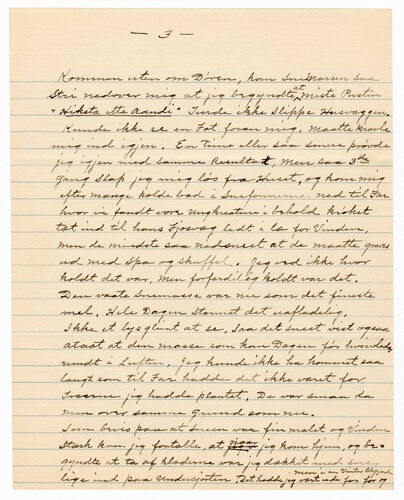 — 3 —
Kommen uten om Døren, kom SneMassen saa
Stri nedover mig at jeg begyndte at Miste Pusten
"Hiksta ette Aandi" Turde ikke Slippe Husvæggen.
Kunde ikke se en Fot foran mig. Maatte kravle
mig ind igjen. En Time eller saa senere prøvde
jeg igjen med samme Resultat, Men saa 3die
Gang Slap jeg mig løs fra Huset, og kom mig
efter mange kolde bad i Snefonnene ned til Far
hvor vi fandt vore ungkreature i behold
tat ind til hans Fjøsvæg ledt i læ for Vinden,
men de mindste saa nedsneet at de maatte graves
ud med Spa og skuffel. Jeg ved ikke hvor
koldt det var, Men forferdelig koldt var det.
Den vaate Snemasse var nu som det fineste
mel, Hele Dagen Stormet det uafladelig.
Ikke et lysglimt at se, Saa det sneet vist ogsaa
at den masse som kom Dagen før
rundt i Luften. Jeg kunde ikke ha kommet saa
langt som til Far hadde det ikke været for
Træerne jeg hadde plantet. De var smaa da
men over samme Grund som nu.
Som bevis paa at Sneen var fin malt og Vinden
Stærk kan jeg fortælle, at jeg kom hjem, og be-
gyndte at ta af klæderne var jeg dækket med
lige ind paa underskjorten. Det hadde jeg vært ude for før og
men i en Vinter Blizzard